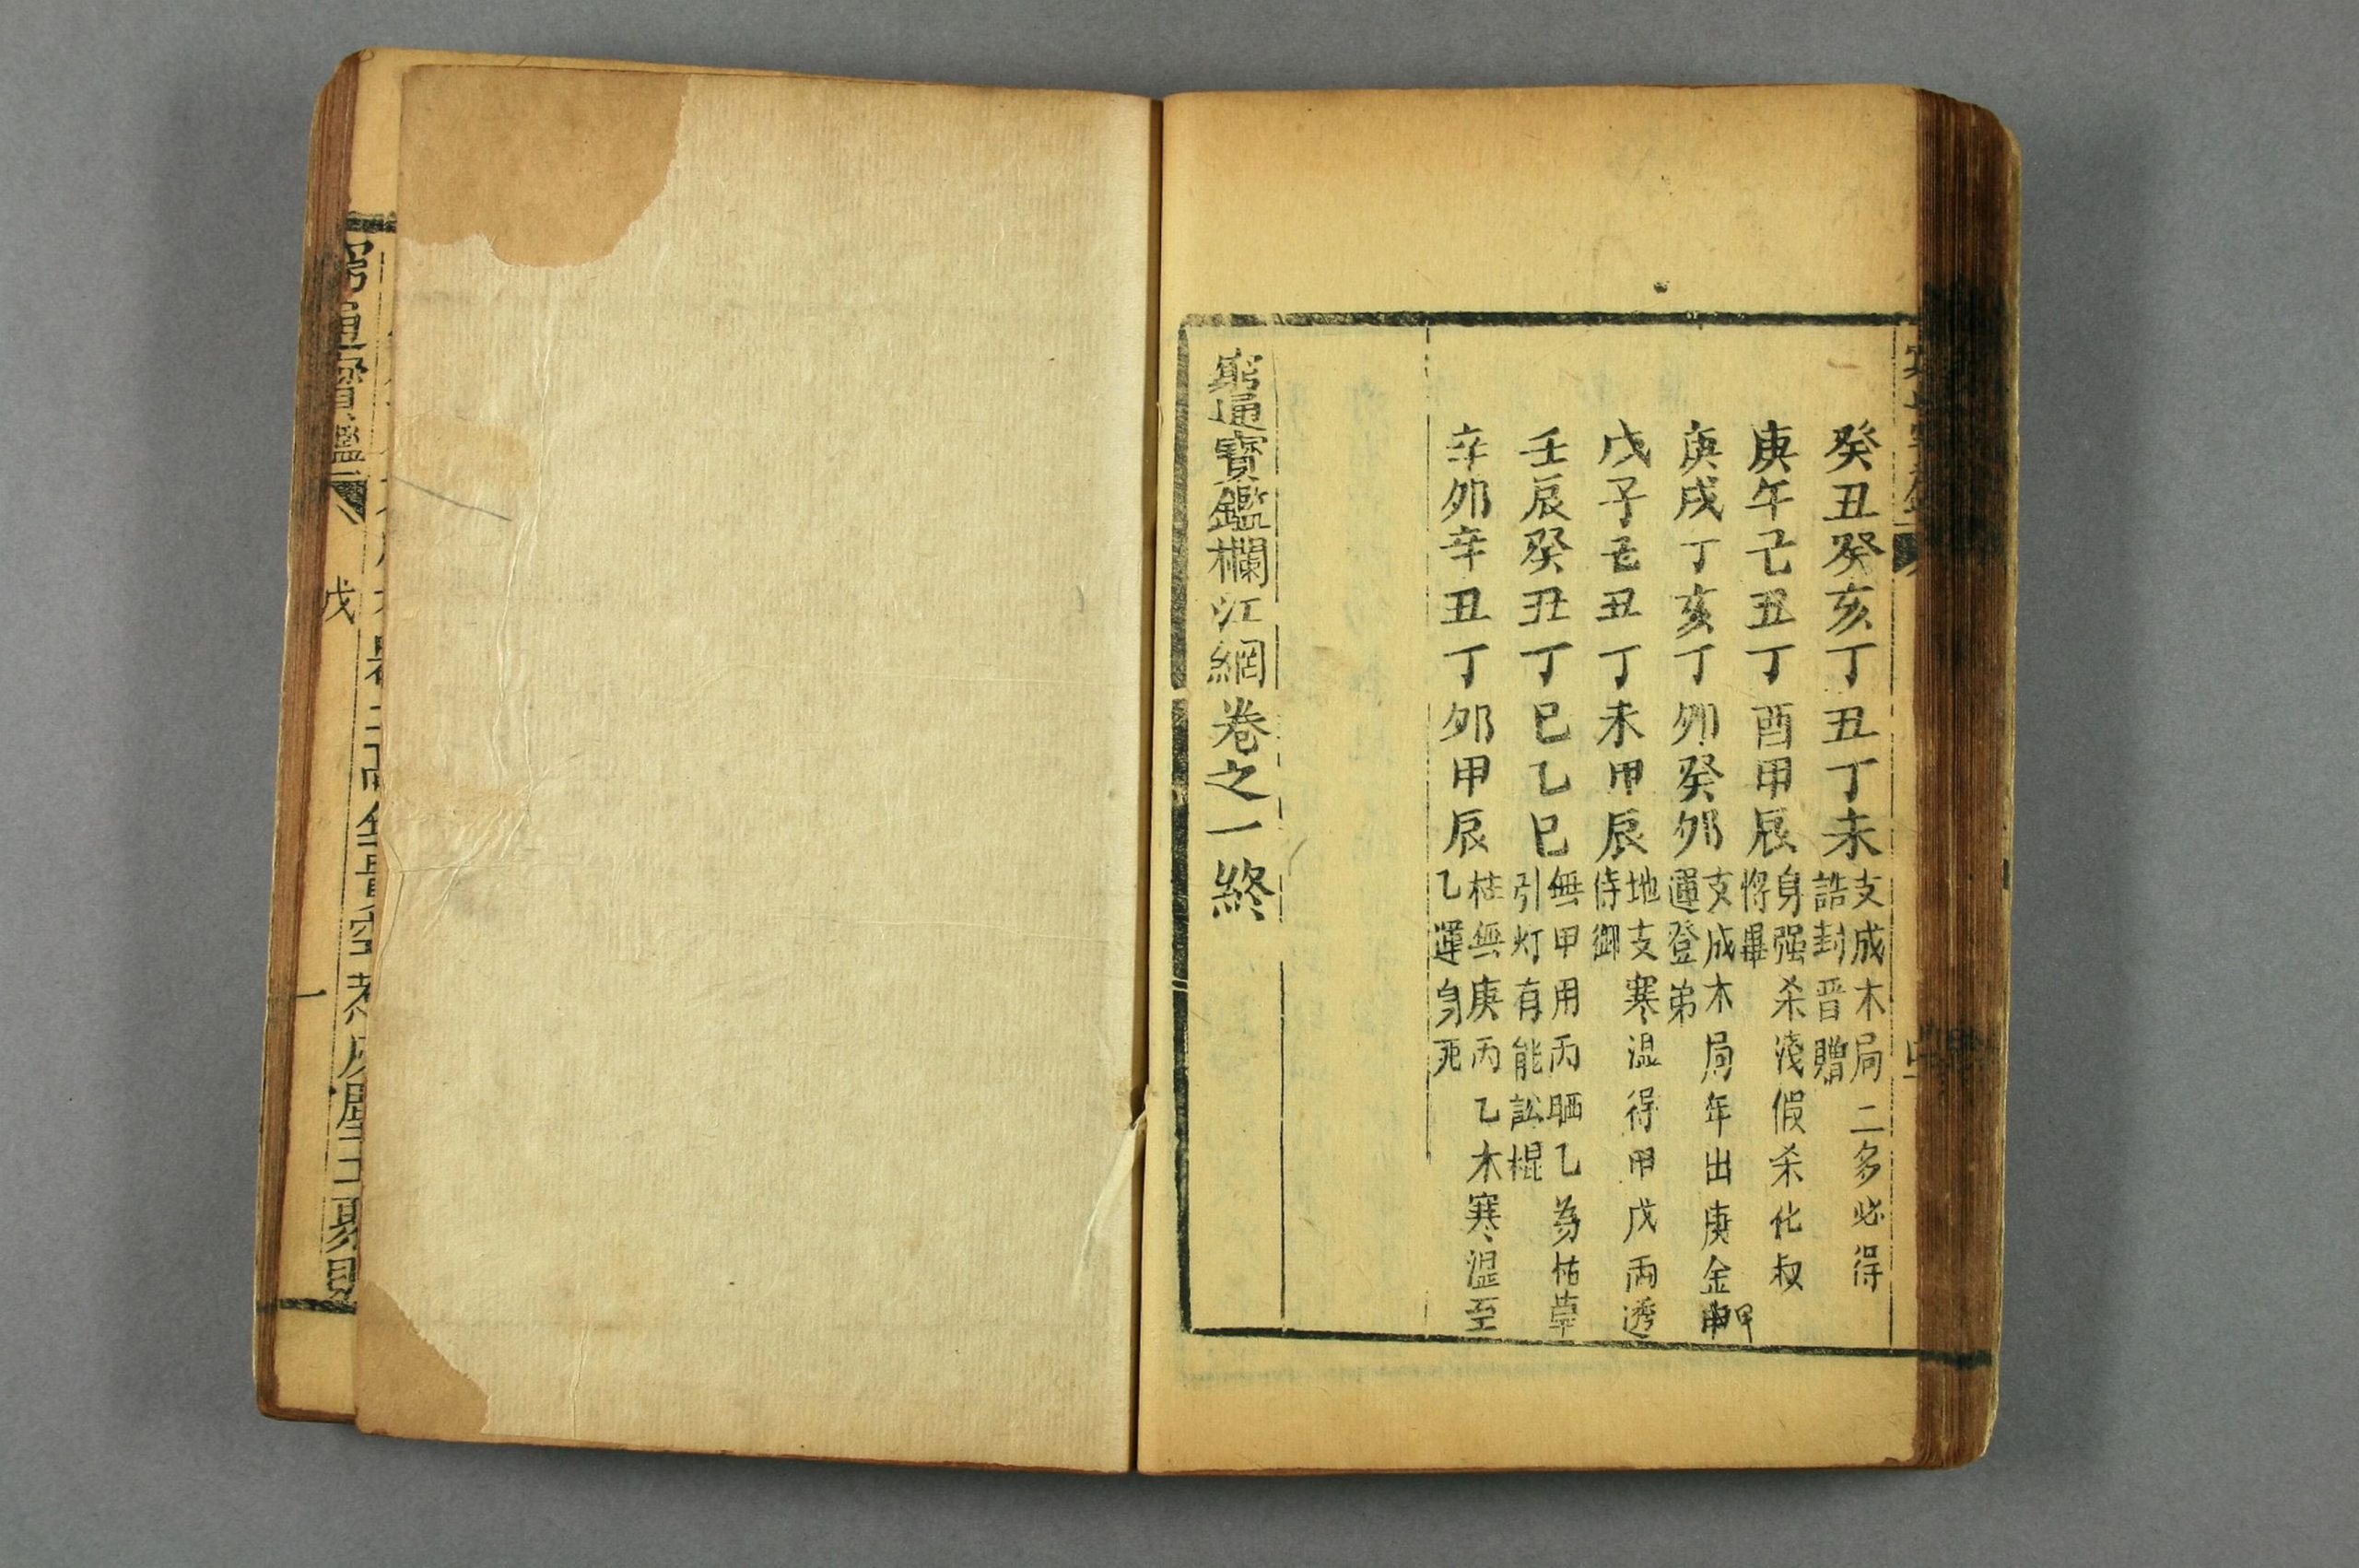 癸丑癸亥丁丑丁未
支成木局二多必得
誥封晋贈
庚午己丑丁酉甲辰
身强杀淺假杀化叔
將畢
庚戌丁亥丁卯癸卯
支成木局年出庚金甲
運登弟
戊子乙丑丁未甲辰
地支寒湿得甲戊兩透
侍御
壬辰癸丑丁巳乙巳
無甲用丙晒乙為枯草
引灯有能訟棍
辛卯辛丑丁卯甲辰
柱無庚丙乙木寒湿至
乙運身死
窮通寶鑑欄江網卷之一終
窮通寶鑑
戊
一